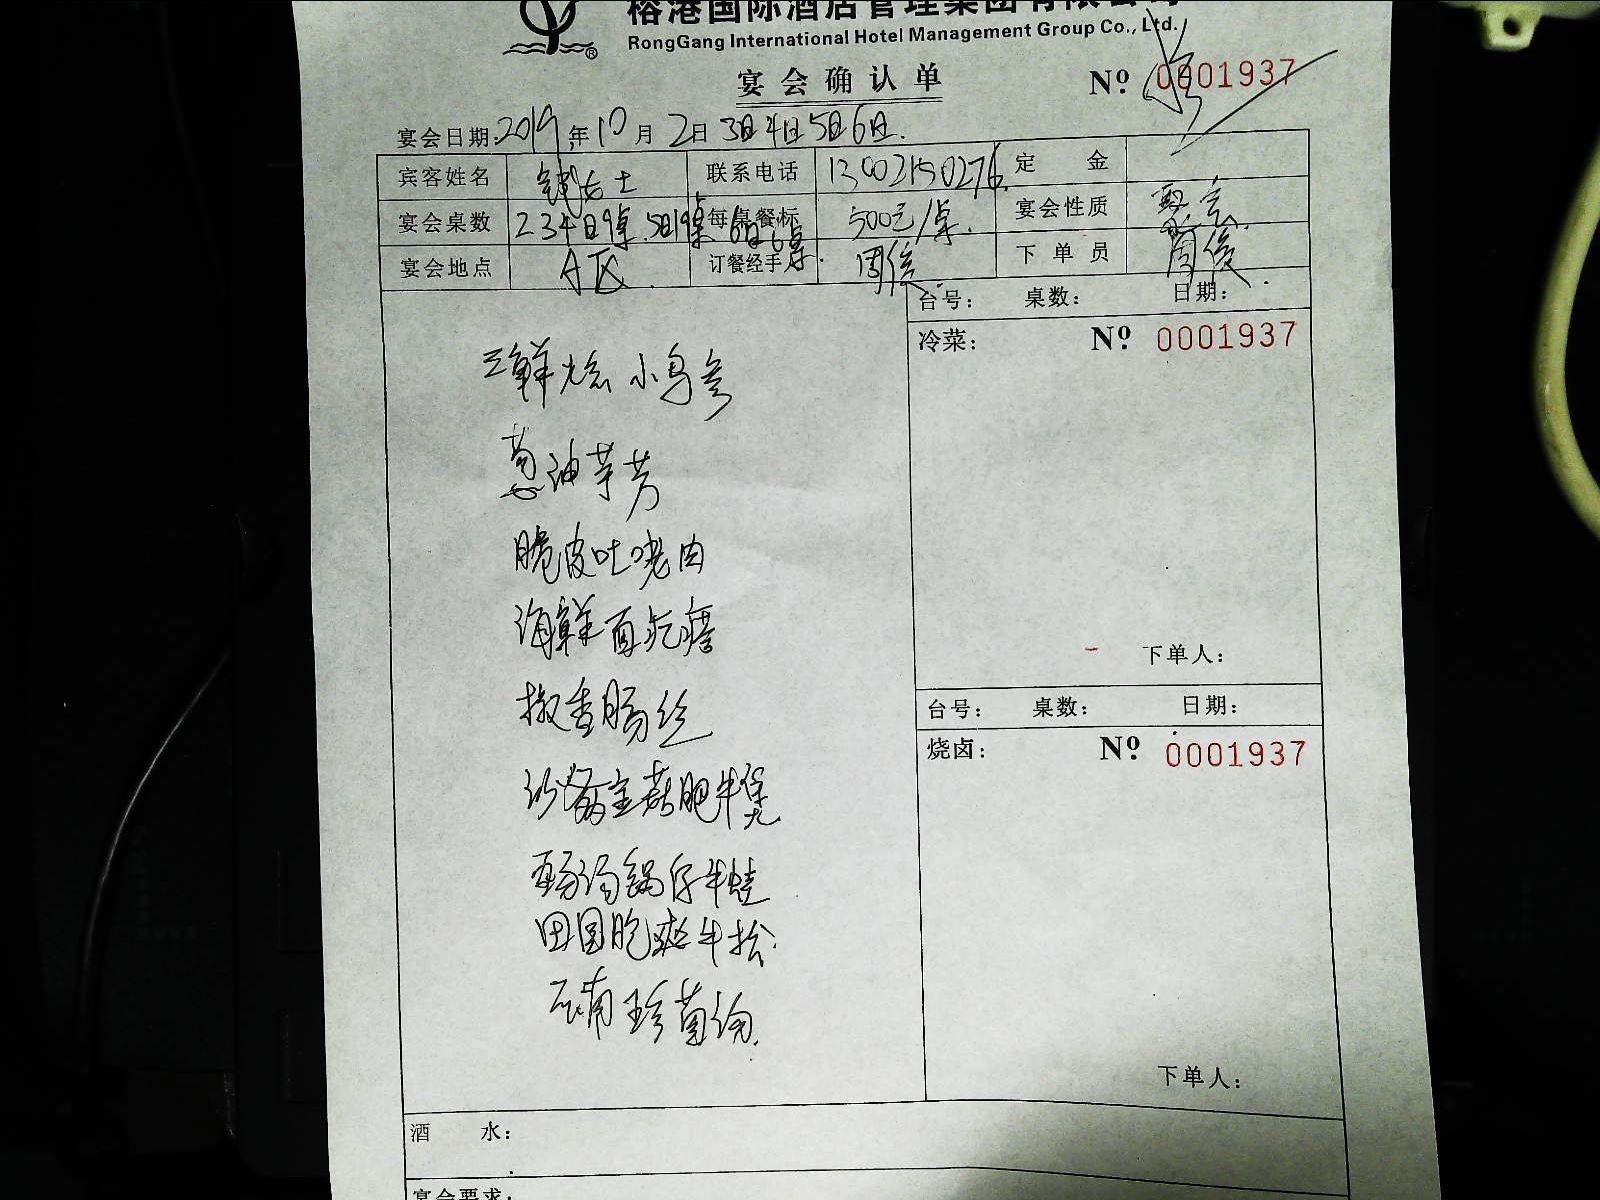 榕港国际酒店管理集团有限公司
®
RongGang International Hotel Management Group Co., Ltd.
宴会确认单
Nº 0001937
宴会日期: 2019年10月2日3日4日5日6日.
宾客姓名 钱女士 联系电话 13002150276. 定金
宴会桌数 2 3 4日9桌.5日9桌.6日6桌. 每桌餐标 500元/桌. 宴会性质 聚会
宴会地点 A区. 订餐经手 周俊 下单员 周俊.
台号: 桌数: 日期:
冷菜: Nº 0001937
三鲜烩小乌参
葱油芋艿
脆皮吐咾肉
海鲜面疙瘩
椒香肠丝
金菇肥牛煲
汤锅仔牛蛙
田园脆爽牛松
珍菌汤.
下单人:
台号: 桌数: 日期:
烧卤: Nº 0001937
下单人:
酒水:
宴会要求: